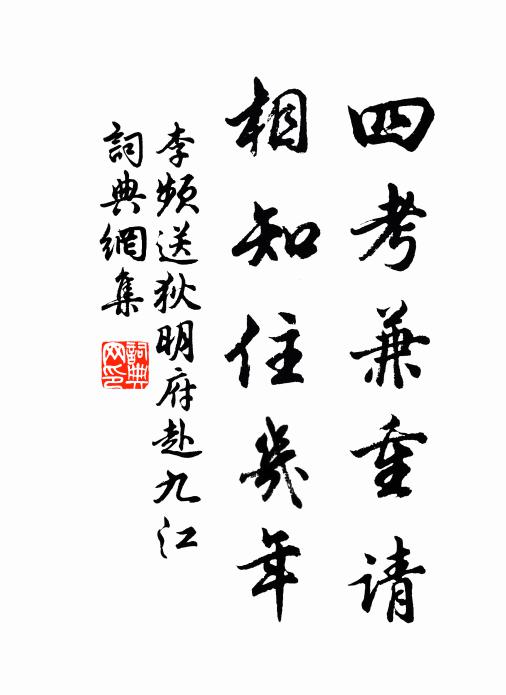 四考兼重请
相知住幾年
李頻送狄明府赴九江
詞典網集
詞典
网印